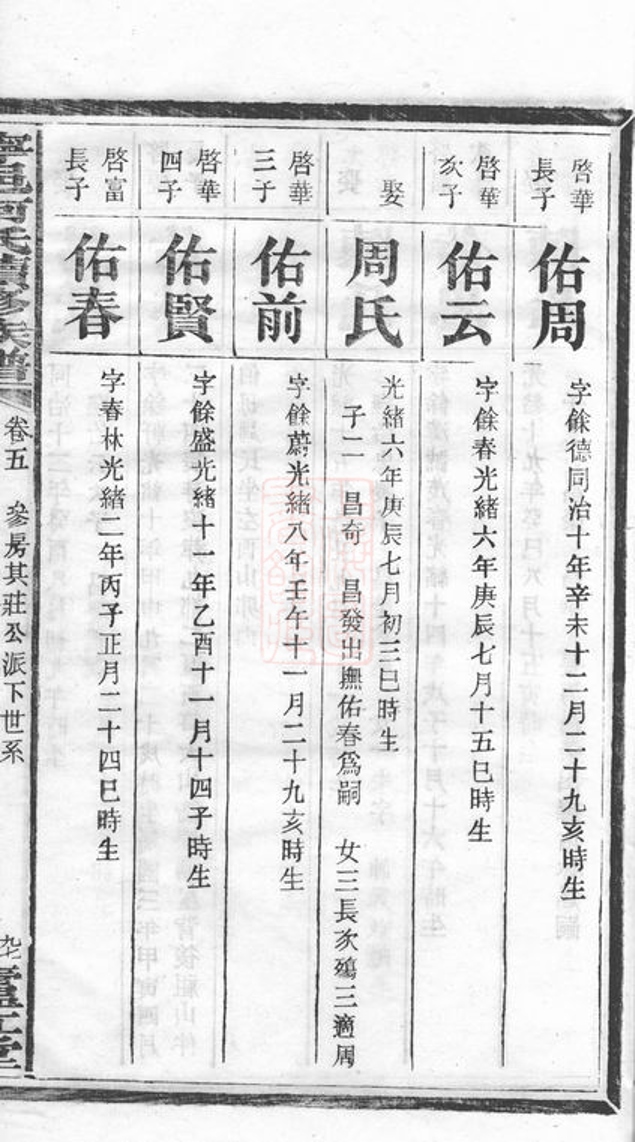 啓華長子
佑周
字餘德同治十年辛未十二月二十九亥時生
啓華次子
佑云
字餘春光緒六年庚辰七月十五巳時生
娶
周氏
光緒六年庚辰七月初三巳時生
子二 昌奇 昌發出撫佑春爲嗣 女三長次殤三適周
啓華三子
佑前
字餘蔚光緒八年壬午十一月二十九亥時生
啓華四子
佑賢
字餘盛光緒十一年乙酉十一月十四子時生
啓富長子
佑春
字春林光緒二年丙子正月二十四巳時生
寧邑何氏續修族譜
卷五 參房其莊公派下世系
九七